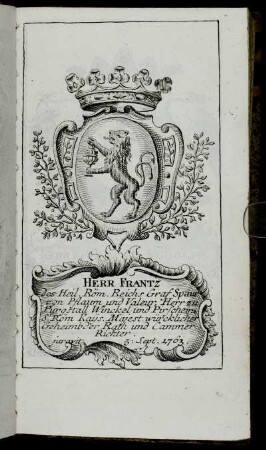 HERR FRANTZ
des Heil. Röm. Reichs Graf Spaur
von Pflaum und Valeur, Herr zu
Burgstall, Winckel und Fürschein
S. Röm. Kays. Majest. würcklicher
Geheimbder Rath und Cammer
Richter
juravit 5. Sept. 1763